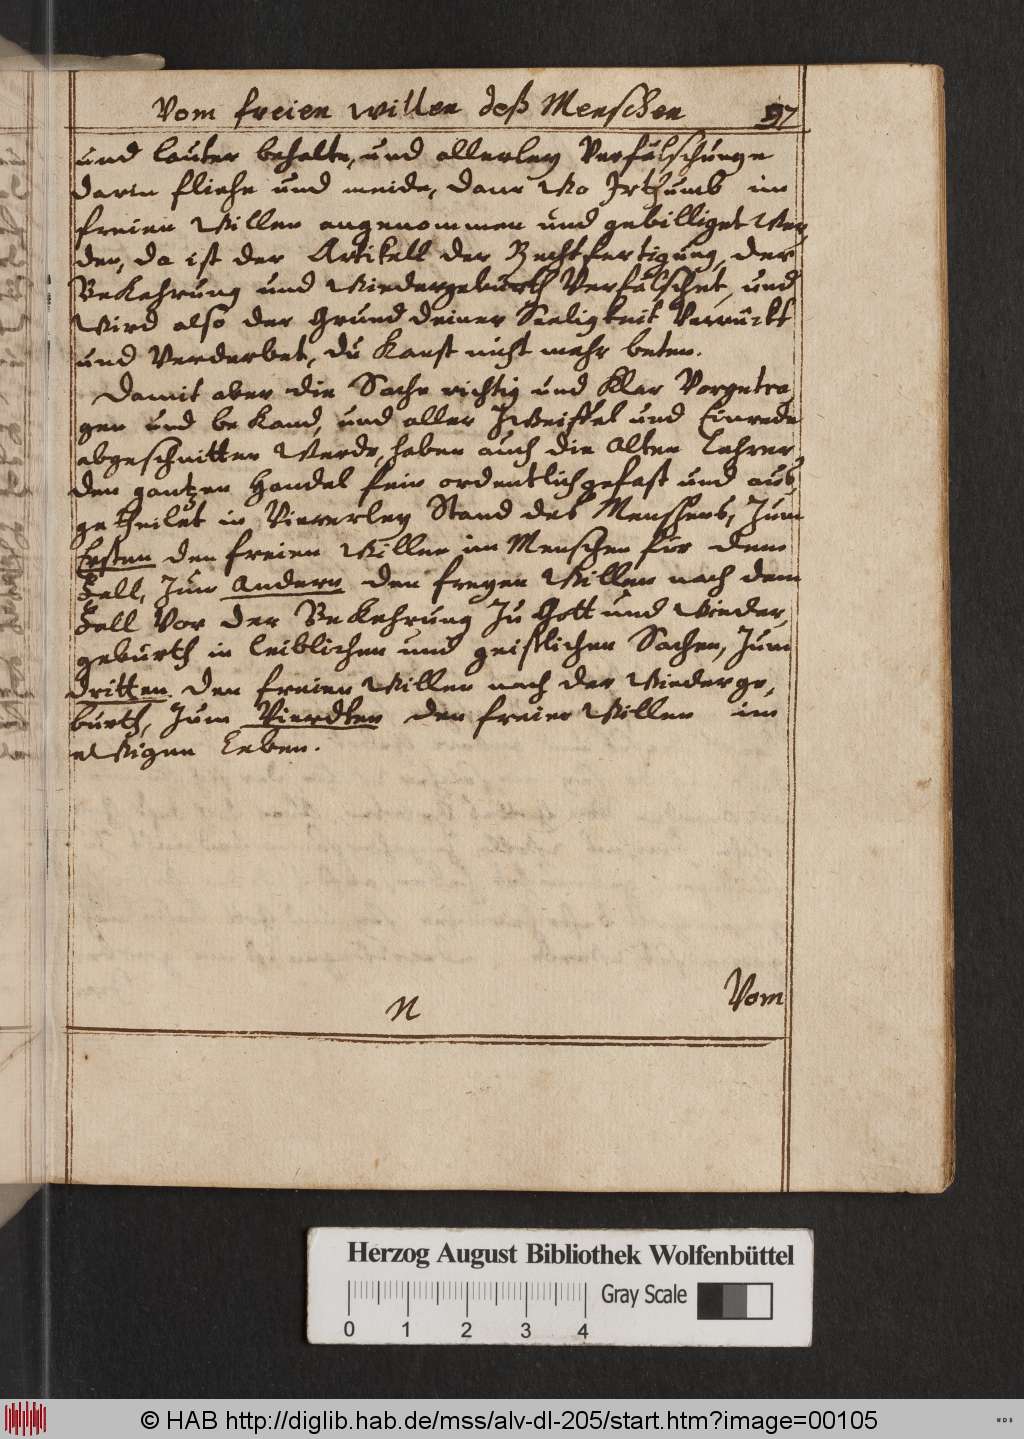 Vom freien willen deß Menschen 97
und lauter behalte, und allerley Verfälschunge
darin fliehe und meide, dann wo Irthumb im
freien Willen angenommen und gebilliget wer,
den, da ist der Artikell der Rechtfertigung, der
Bekehrung und Wiedergeburth Verfälschet, und
wird also der Grund deiner Seeligkeit Verrückt
und Verderbet, du kanst nicht mehr beten.
Damit aber die Sache richtig und klar Vorgetra,
gen und bekand, und aller Zweiffel und Einrede
abgeschnitten werde, haben auch die Alten Lehrer,
den gantzen Handel fein ordentlich gefast und aus,
getheilet in Viererley Stand des Menschens, Zum
Ersten den freien Willen im Menschen für dem
Fall, Zum Andern den freyen Willen nach dem
Fall Vor der Bekehrung Zu Gott und Wieder,
geburth in leiblichen und geistlichen Sachen, Zum
dritten den freien Willen nach der Wiederge,
burth, Zum Vierdten den freien Willen im
ewigen Leben.
N Vom
Herzog August Bibliothek Wolfenbüttel
Gray Scale
0 1 2 3 4
© HAB http://diglib.hab.de/mss/alv-dl-205/start.htm?image=00105
WDB